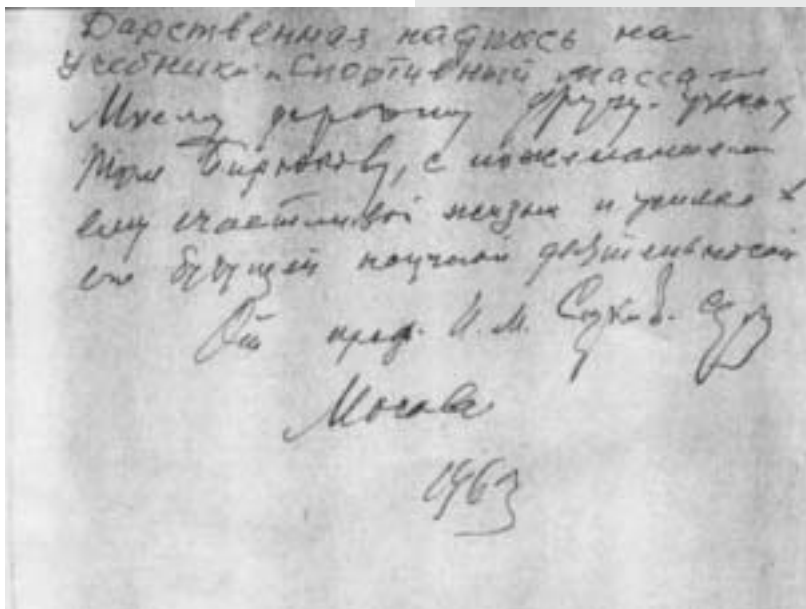 Дарственная надпись на
учебнике „Спортивный массаж
Моему дорогому другу-
Бирюкову, с пожеланием
ему счастливой жизни и успеха в
его будущей научной деятельности
От проф. И. М.
Москва
1963